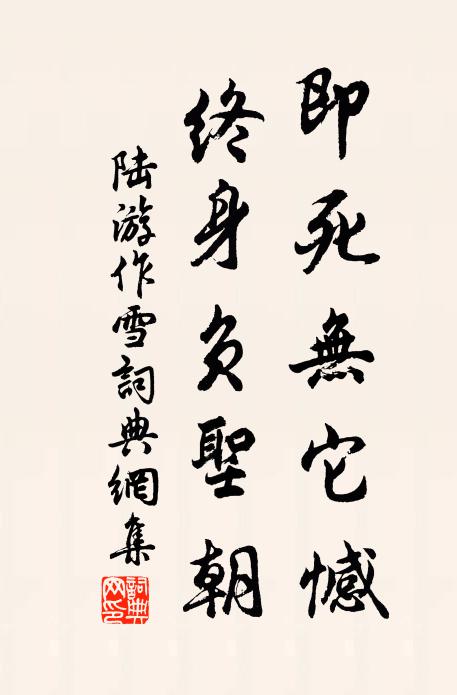 即死無它憾
终身负聖朝
陆游作雪詞典網集
詞典網印